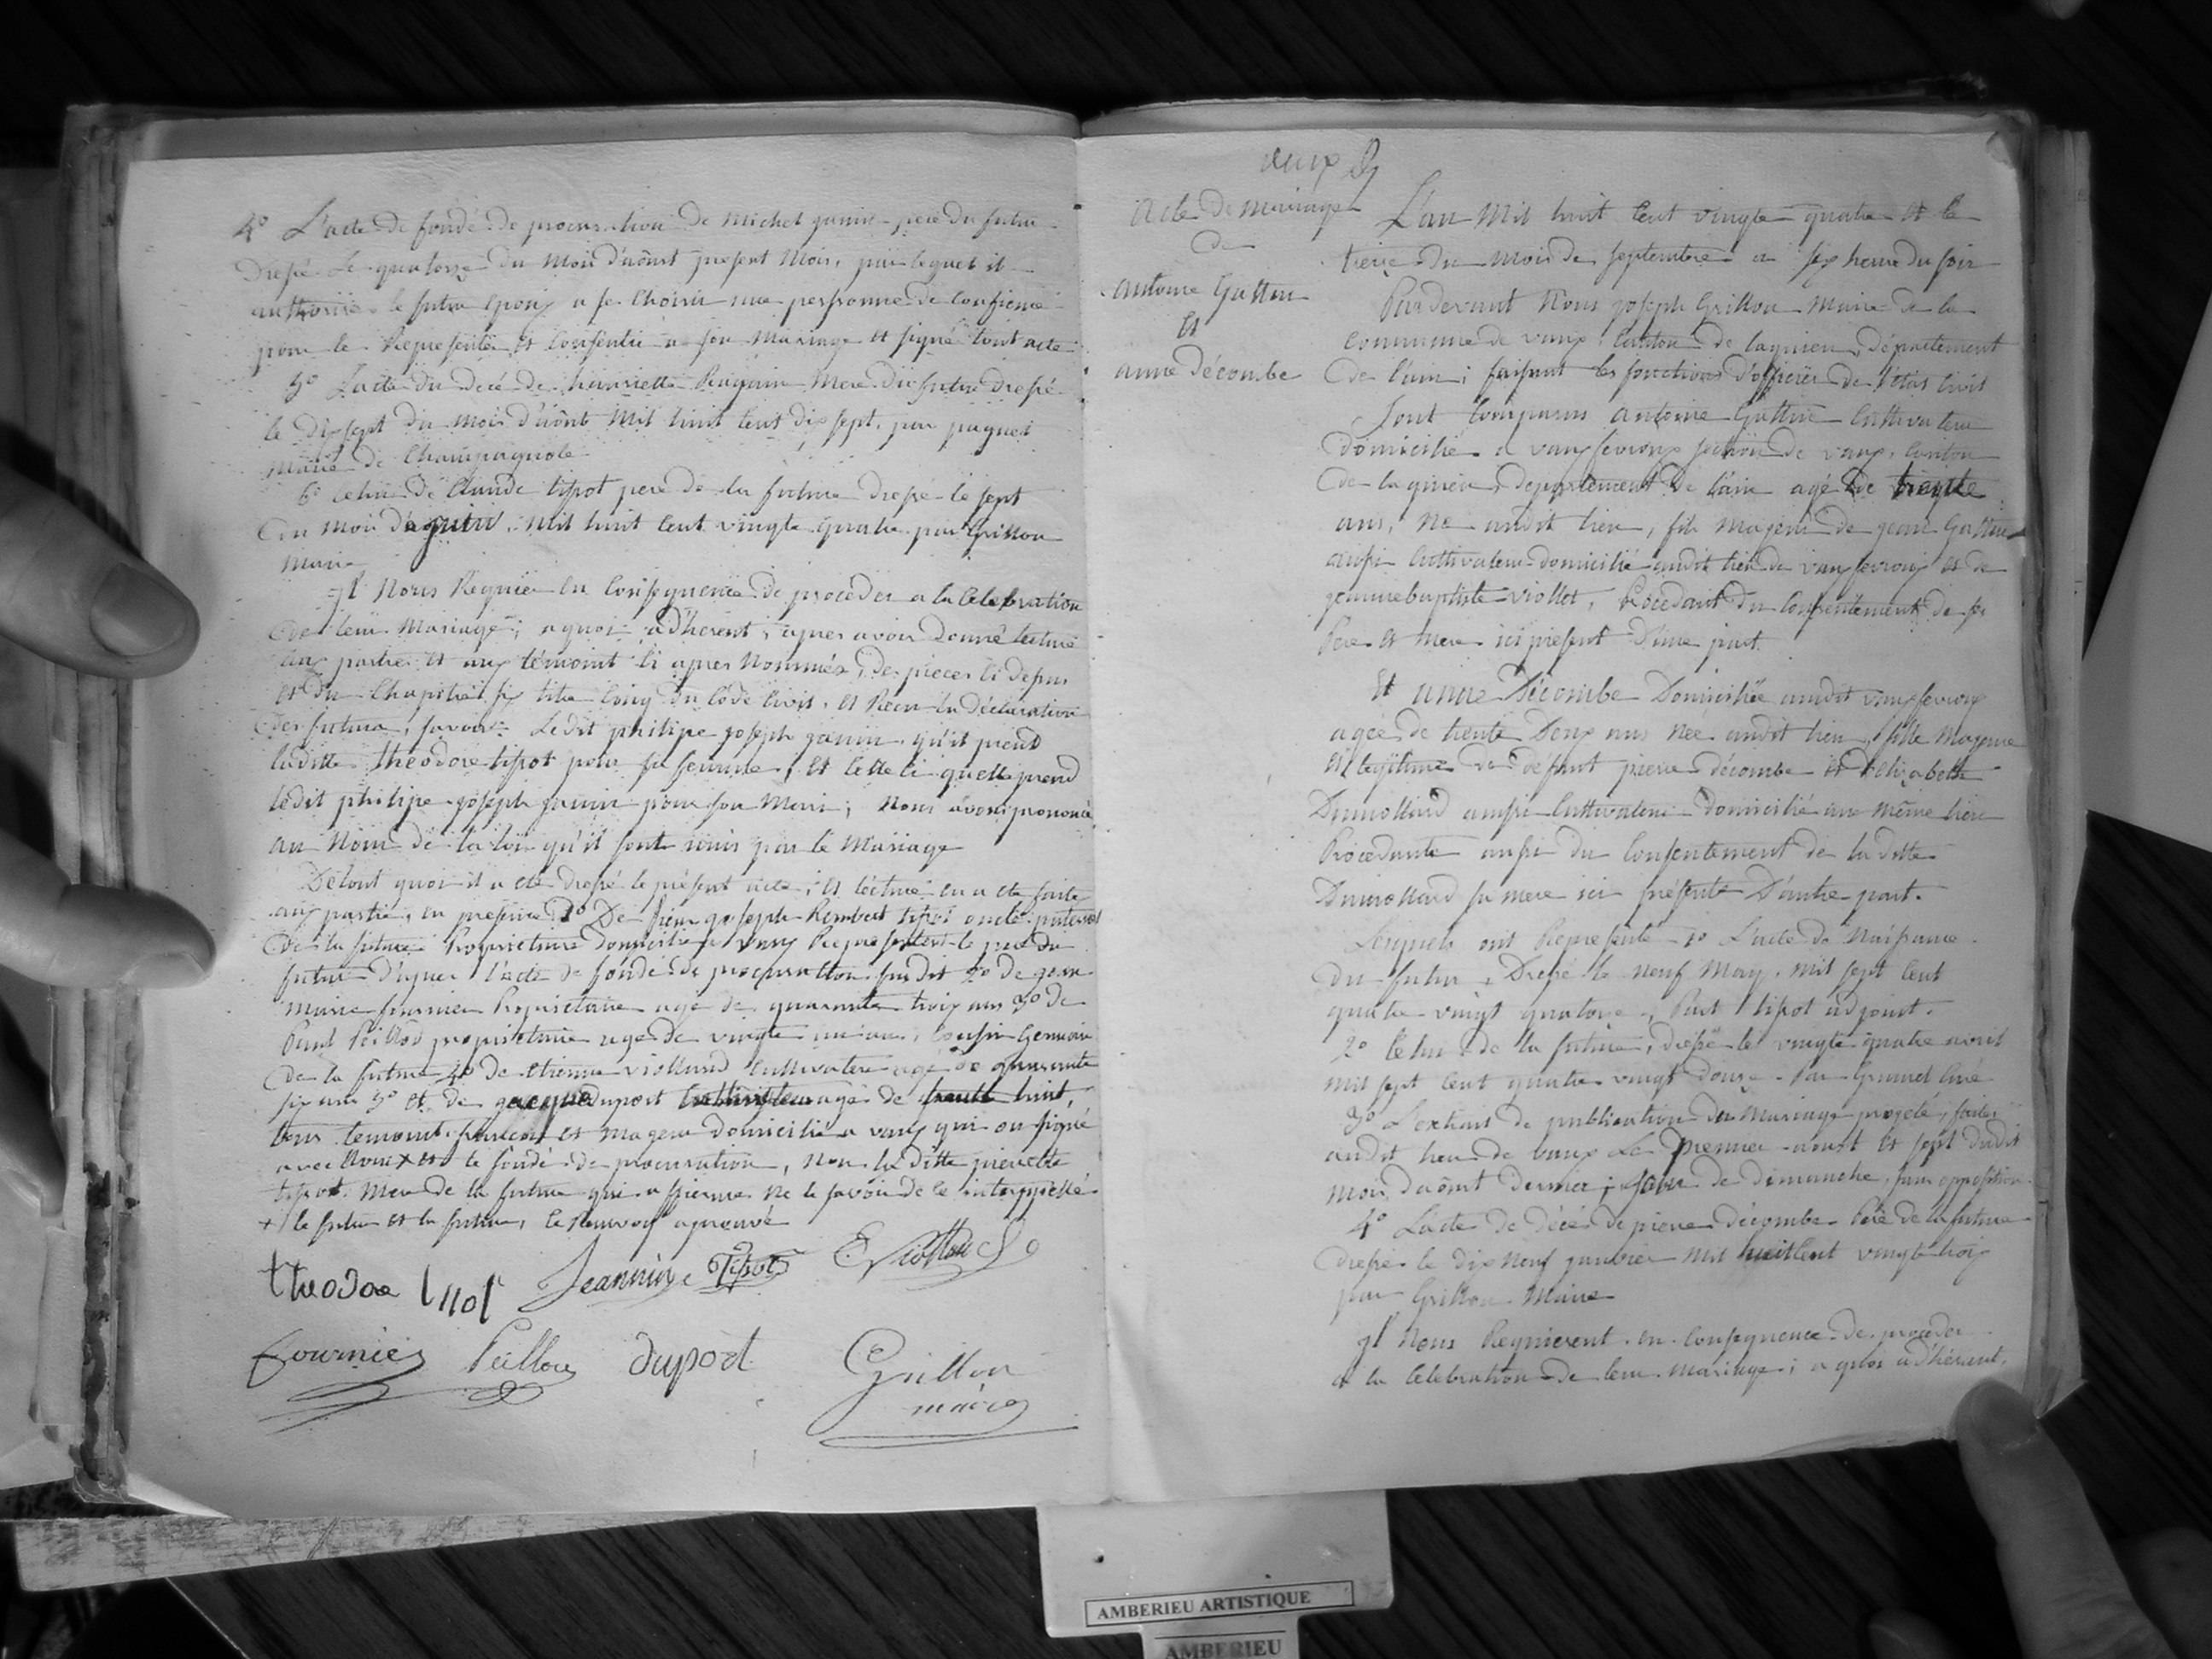 4° L'acte de fondé de procuration de Michel janin pere du futur
dressé le quatorze du mois d'aôust present Mois, par lequel il
authorise le futur epoux a se choisir une personne de confience
pour le Representer et Consentir a son Mariage et signé tout acte
5° L'acte du decé de henriette Mere du futur dressé
le dix sept du mois d'aôust Mil huit Cent dix sept, par paguet
Maire de Champagnole
6° celui de Claude tissot pere de la future dressé le sept
du mois de juin, mil huit Cent vingte quatre par Grillon
Maire
jl Nous Requier en Consequence de procéder a la Celebration
de leur Mariage; a quoi adherent, apres avoir donné lecture
aux parties et aux témoint ci apres Nommés, des pieces ci depus
et du Chapitre six titre Cinq du Code Civil, et Recu la déclaration
des futurs, savoir: Ledit philipe joseph janin qu'il prend
laditte theodore tissot pour sa femme, et Cette ci quelle prend
ledit philipe joseph janin pour son Mari; Nous avons prononcé
au Nom de la loi qu'il sont unis par le Mariage
De tout quoi il a eté dressé le présent acte; et lécture en a ete faite
aux partie, en presence 1° De sieur joseph Rembert tissot oncle paternel
de la future Proprietaire domicilié a vaux Representent le pere du
futur d'apres l'acte de fondé de procuration susdit 2° de jean
marie fournier Proprietaire agé de quarante trois ans 3° de
Paul Peillod proprietaire agé de vingte un ans, Cousin Germain
de la future 4° de etienne viollard Cultivateur agé de quarante
six ans 5° et de jacque duport agé de trente huit,
tous temoint francois et Mageur domicilié a vaux qui on signé
avec Nous + et le fondé de procuration, Non la ditte pierrette
tissot Mere de la future qui a affiermé Ne le savoir de ce interppellé
+ le futur et la future, le Renvoi aprouvé
theodore tissot Jeannin Tissot E Viollard
fournier Peillod duport Grillon
maire
vaux
Acte de mariage
de
antoine Guttin
et
anne décombe
L'an Mil huit Cent vingte quatre et le
treize du mois de septembre a six heure du soir
Pardevant Nous joseph Grillon Maire de la
commune de vaux Canton de lagnieu, département
de l'ain; faisant les fonctions d'officier de l'état Civil
Sont Comparus antoine Guttin Cultivateur
domicilié a vaux fevroux section de vaux, Canton
de lagnieu, departement de l'ain agé de trente
ans, Né audit lieu, fils mageur de jean Guttin
aussi Cultivateur domicilié audit lieu de vaux fevroux et de
jeanne baptiste viollet, Procedant du Consentement de se
Pere et Mere ici present d'une part
Et anne Décombe Domiciliée audit vaux fevroux
agée de trente Deux ans Née audit lieu, fille Mageure
et legitime de defunt pierre décombe et d'elizabeth
Dumollard aussi Cultivateur domicilié au même lieu
Procedante aussi du Consentement de laditte
Dumollard sa mere ici présente D'autre part.
Lesquels ont Representé 1° L'acte de Naissance
du futur, Dressé le Neuf May, mil sept Cent
quatre vingt quatorze, Part tissot adjoint.
2° Celui de la future, dressé le vingte quatre avril
Mil sept Cent quatre vingt douze Par Grumel Curé
3° L'extrait de publication du Mariage projeté, faite
audit lieu de vaux Le Premier aoust et sept dudit
Mois d'aoust dernier; jour de dimanche, sans opposition
4° L'acte de décés de pierre décombe Pere de la future
dressé le dix Neuf janvier Mil huit Cent vingte trois
par Grillon Maire
jl Nous Requierent en Consequence de proceder
a la Celebration de leur mariage; a quoi adhérant,
AMBERIEU ARTISTIQUE
AMBERIEU